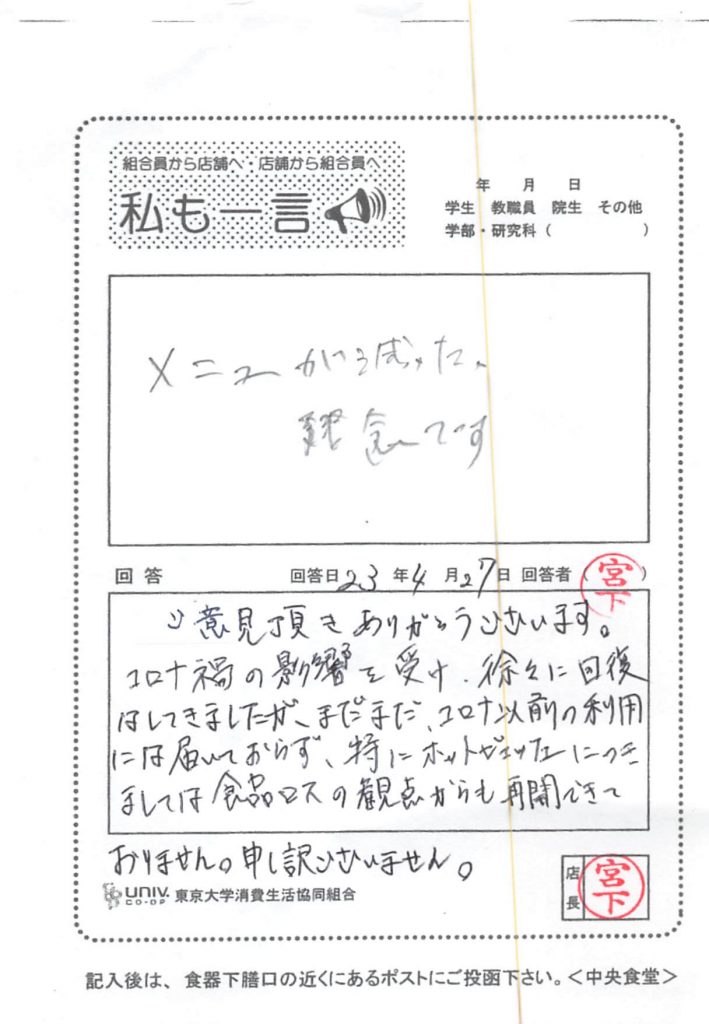 組合員から店舗へ・店舗から組合員へ
私も一言
年 月 日
学生 教職員 院生 その他
学部・研究科( )
メニューがへ減った。
残念です
回答 回答日 23 年 4 月 27 日 回答者 ( 宮下 )
ご意見頂きありがとうございます。
コロナ禍の影響を受け、徐々に回復
はしてきましたが、まだまだ、コロナ以前の利用
には届いておらず、特にホットデリカにつき
ましては食品ロスの観点からも再開できて
おりません。申し訳ございません。
UNIV. CO-OP 東京大学消費生活協同組合
店長 宮下
記入後は、食器下膳口の近くにあるポストにご投函下さい。<中央食堂>